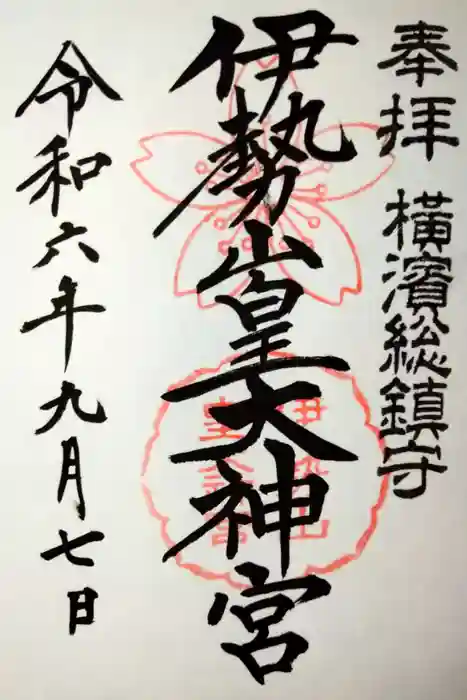 奉拝 横濱総鎮守
伊勢山皇大神宮
令和六年九月七日